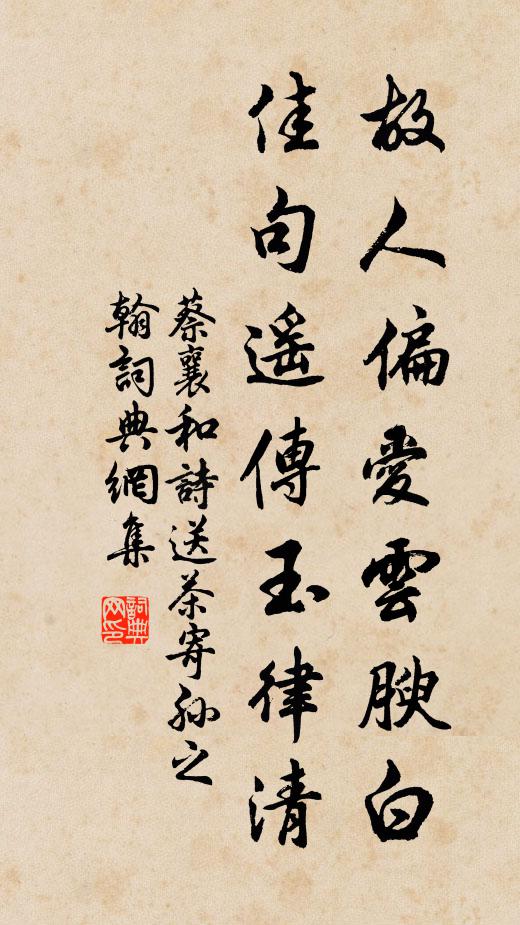 故人偏愛雲腴白
佳句遥傳玉律清
蔡襄和詩送茶寄孙之
翰詞典網集
詞典
网印